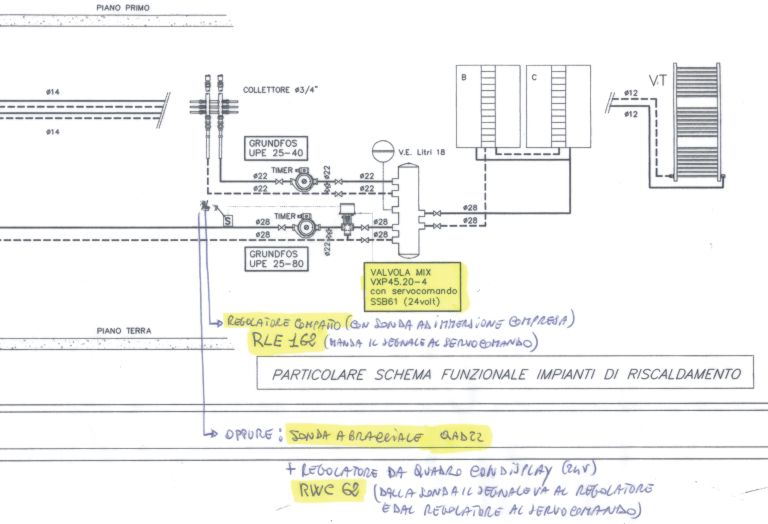 PIANO PRIMO
ø14
ø14
COLLETTORE ø3/4"
B
C
ø12
ø12
V.T
GRUNDFOS
UPE 25-40
V.E. Litri 18
TIMER
ø22
ø22
ø22
ø22
S
TIMER
ø28
ø28
ø28
ø28
ø22
ø28
ø28
GRUNDFOS
UPE 25-80
VALVOLA MIX
VXP45.20-4
con servocomando
SSB61 (24volt)
REGOLATORE COMPATTO (CON SONDA AD IMMERSIONE COMPRESA)
PIANO TERRA
RLE 162 (MANDA IL SEGNALE AL SERVOCOMANDO)
PARTICOLARE SCHEMA FUNZIONALE IMPIANTI DI RISCALDAMENTO
OPPURE: SONDA A BRACCIALE QAD22
+ REGOLATORE DA QUADRO CON DISPLAY (24V)
RWC 62 (DALLA SONDA IL SEGNALE VA AL REGOLATORE
E DAL REGOLATORE AL SERVOCOMANDO)